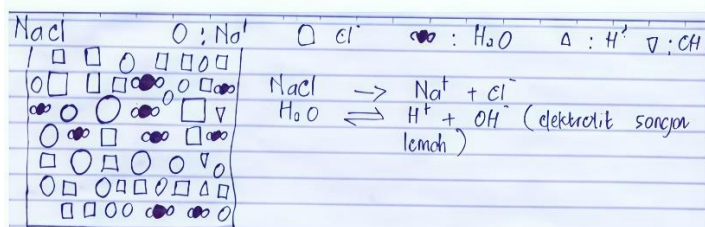 NaCl O : Na⁺ □ Cl⁻ : H₂O △ : H⁺ ▽ : OH
NaCl → Na⁺ + Cl⁻
H₂O ⇌ H⁺ + OH⁻ (elektrolit sangat
lemah)